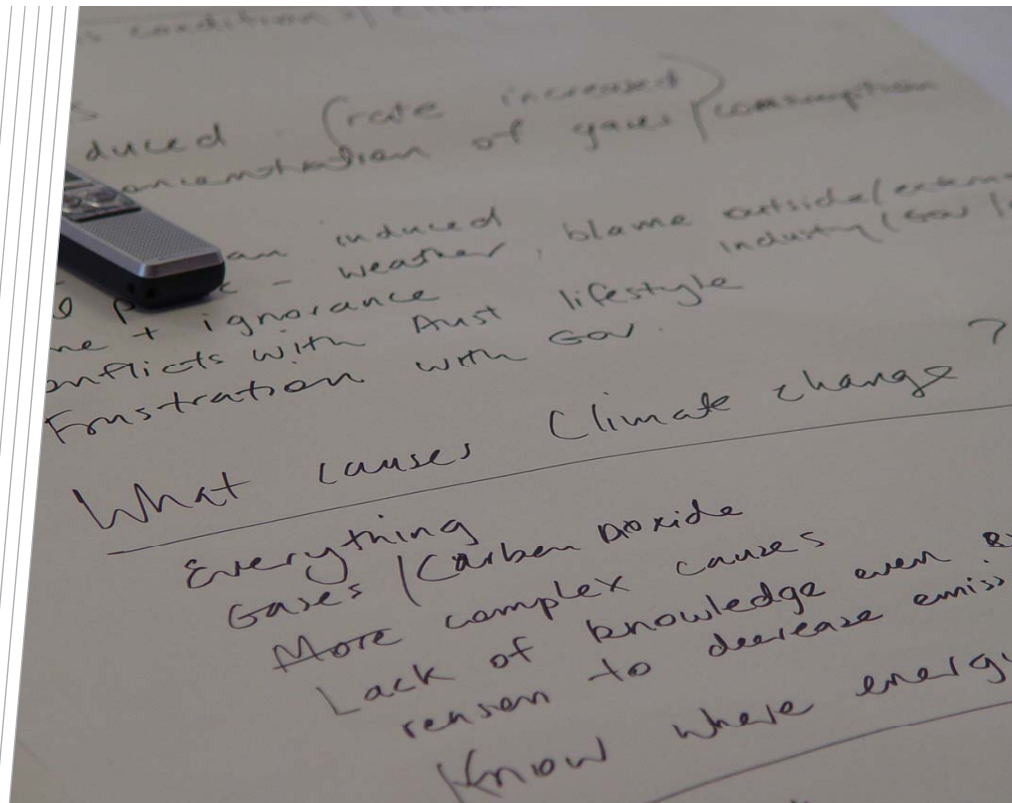 condition / Clim
duced (rate increased)
oncentration of gases / consumption
an induced
- weather, blame outside / extern
industry / Gov /
me + ignorance
onflicts with Aust lifestyle
Frustration with Gov.
What causes Climate change ?
Everything
Gases / Carbon Dioxide
More complex causes
Lack of knowledge even
reason to decrease emiss
Know where energy